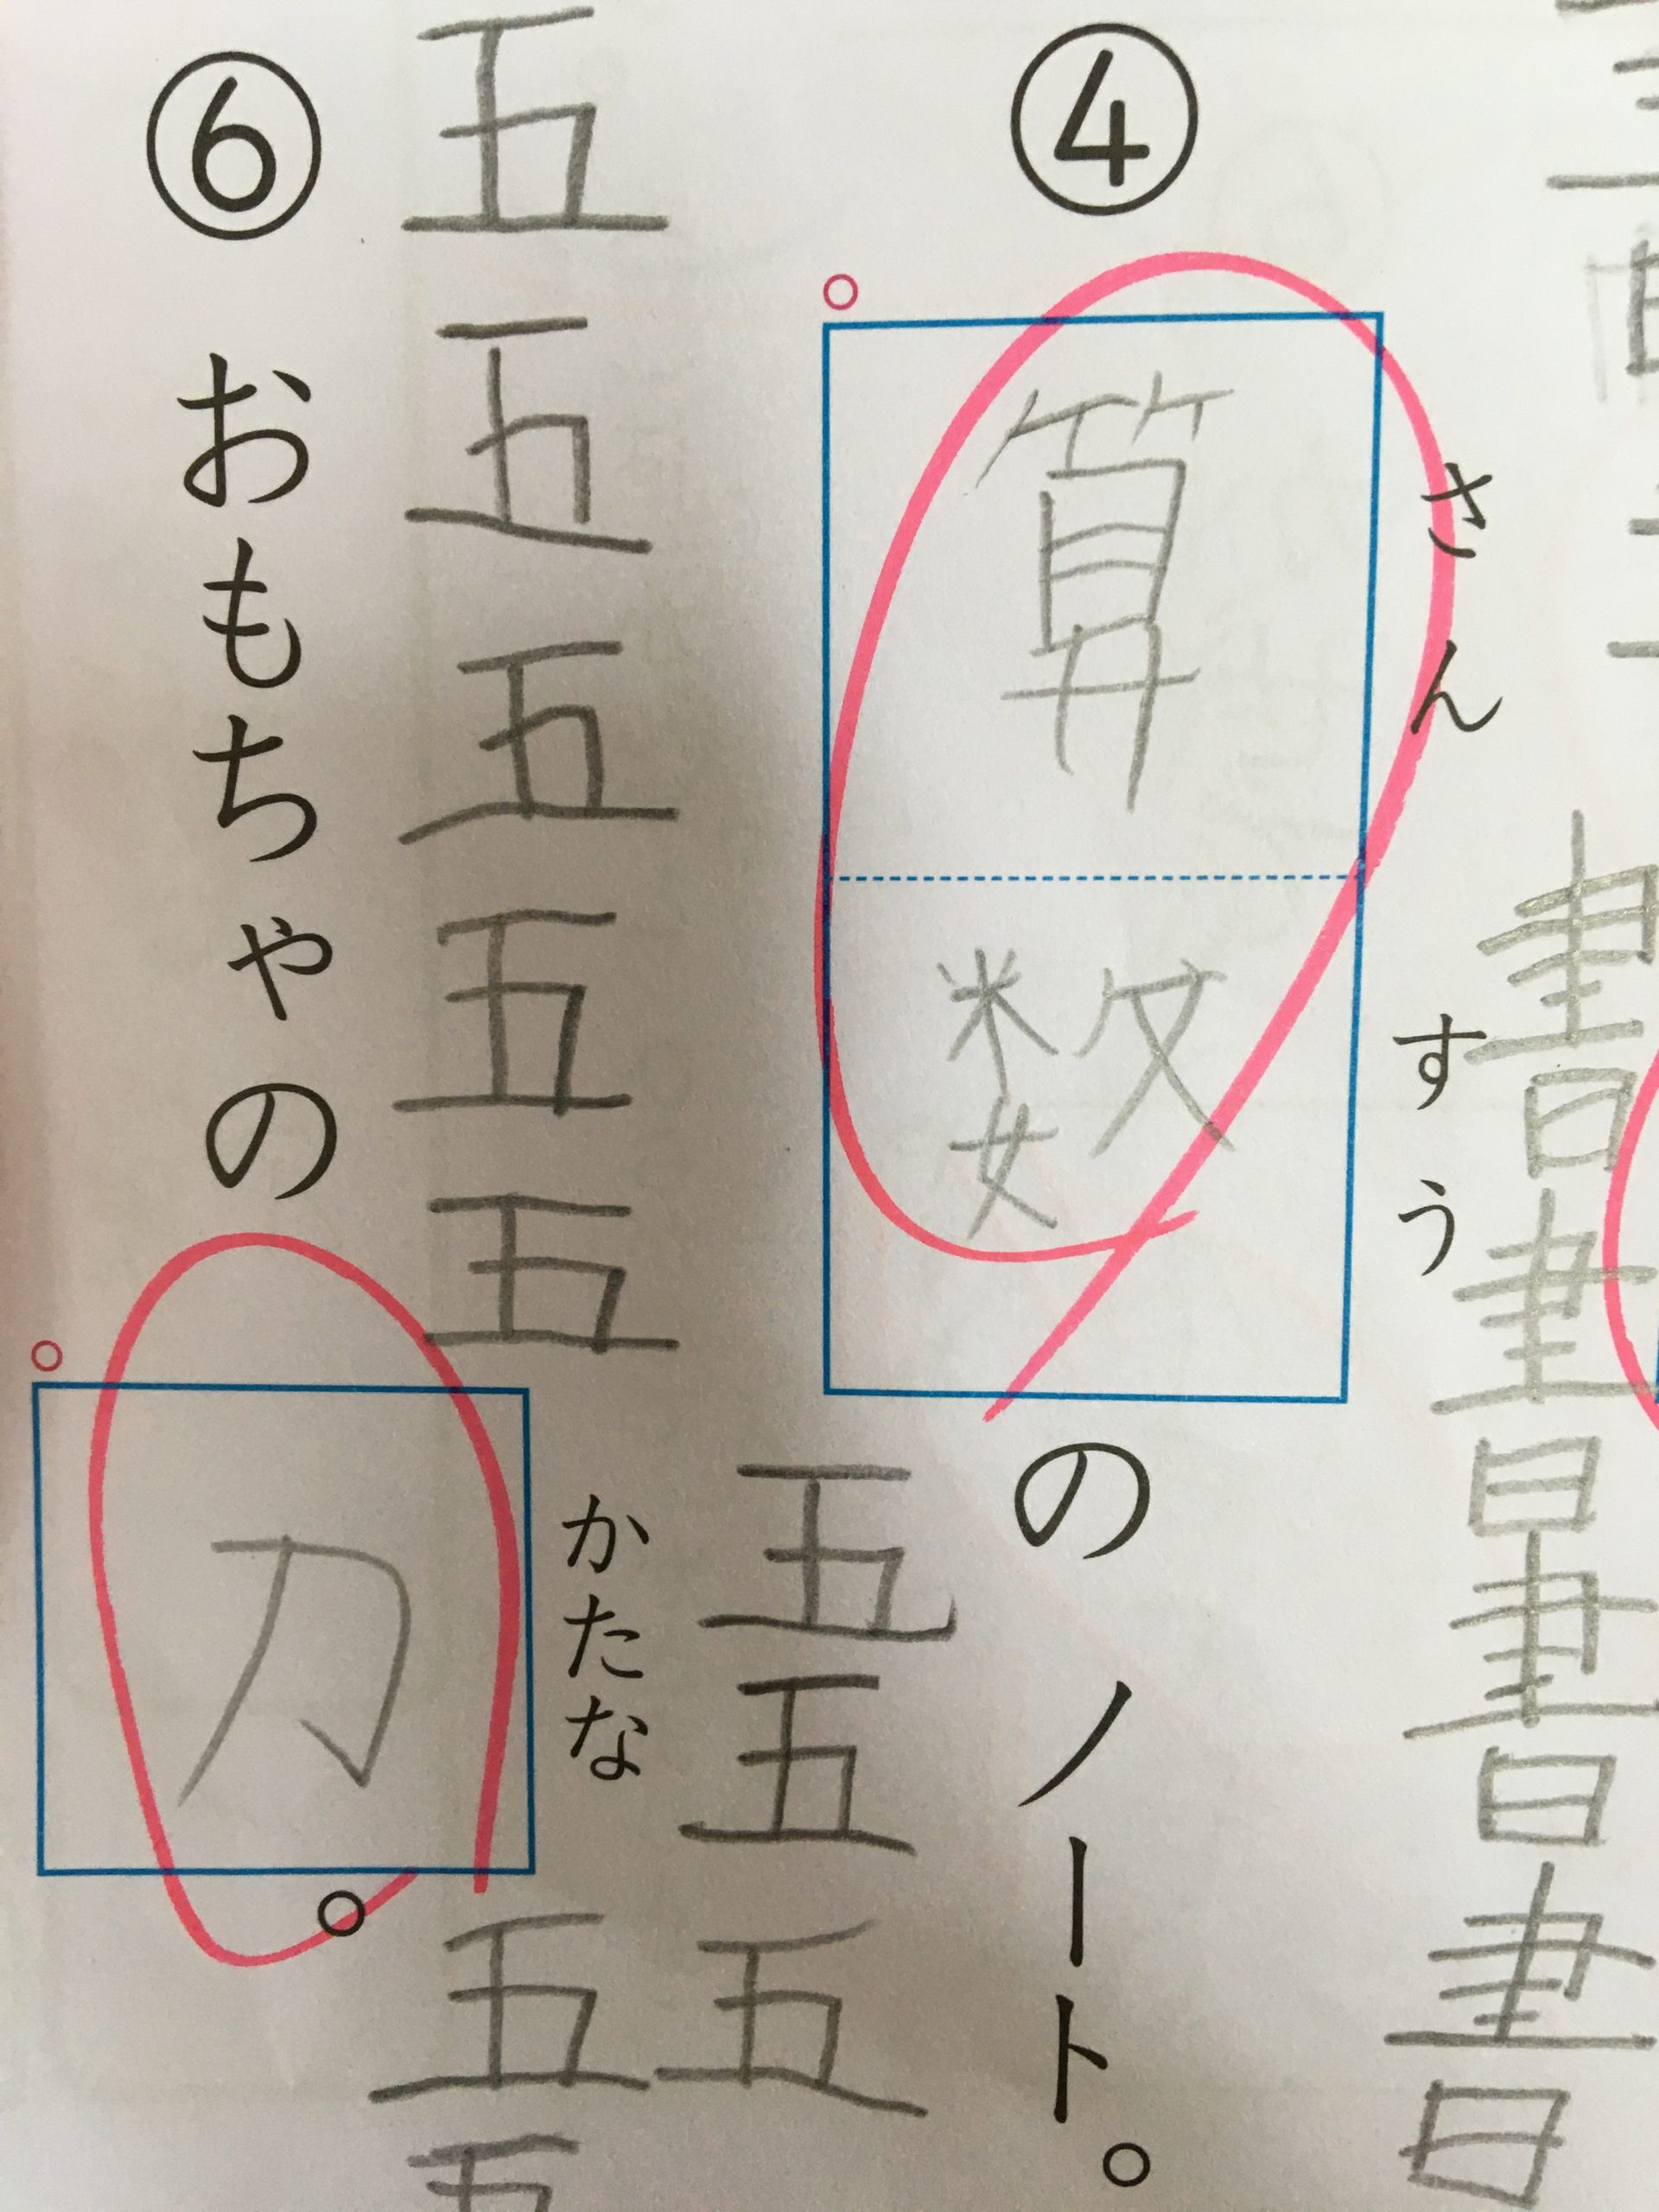 書書書書
さんすう
④算数のノート。
五五五
五五五五五五
かたな
⑥おもちゃの刀。